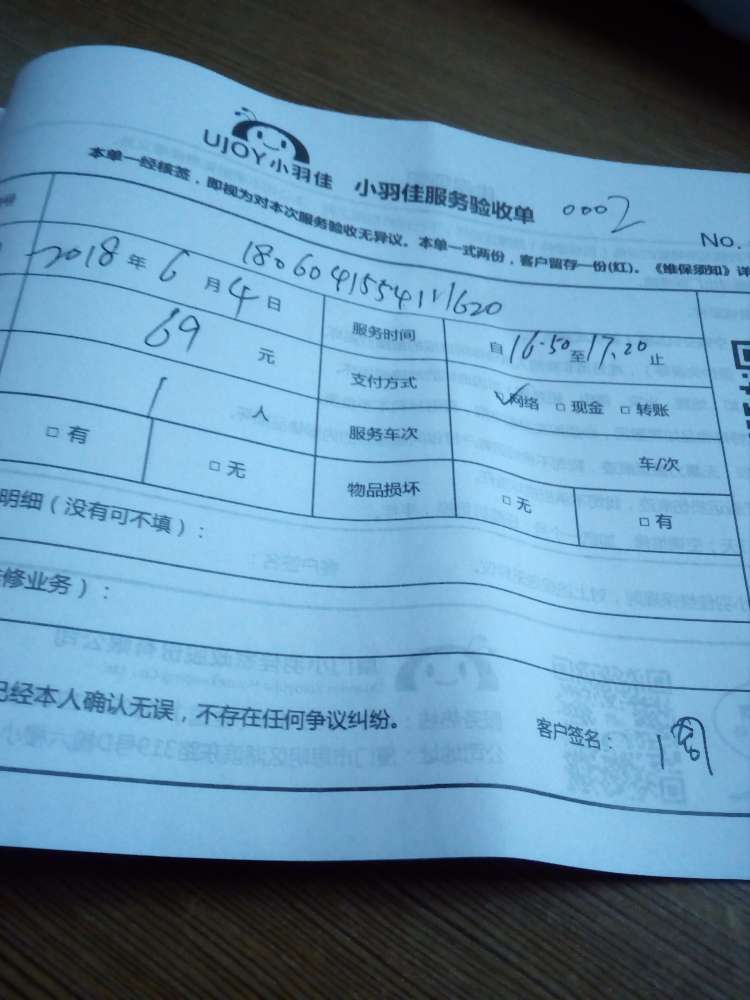 UJOY小羽佳 小羽佳服务验收单 0002
NO.
本单一经核签，即视为对本次服务验收无异议。本单一式两份，客户留存一份(红)。《维保须知》详
18060415541111620
2018年6月4日 服务时间 自16.50至17.20止
69元 支付方式 网络 现金 转账
1人 服务车次 车/次
有 无 物品损坏 无 有
明细（没有可不填）：
修业务）：
已经本人确认无误，不存在任何争议纠纷。 客户签名：